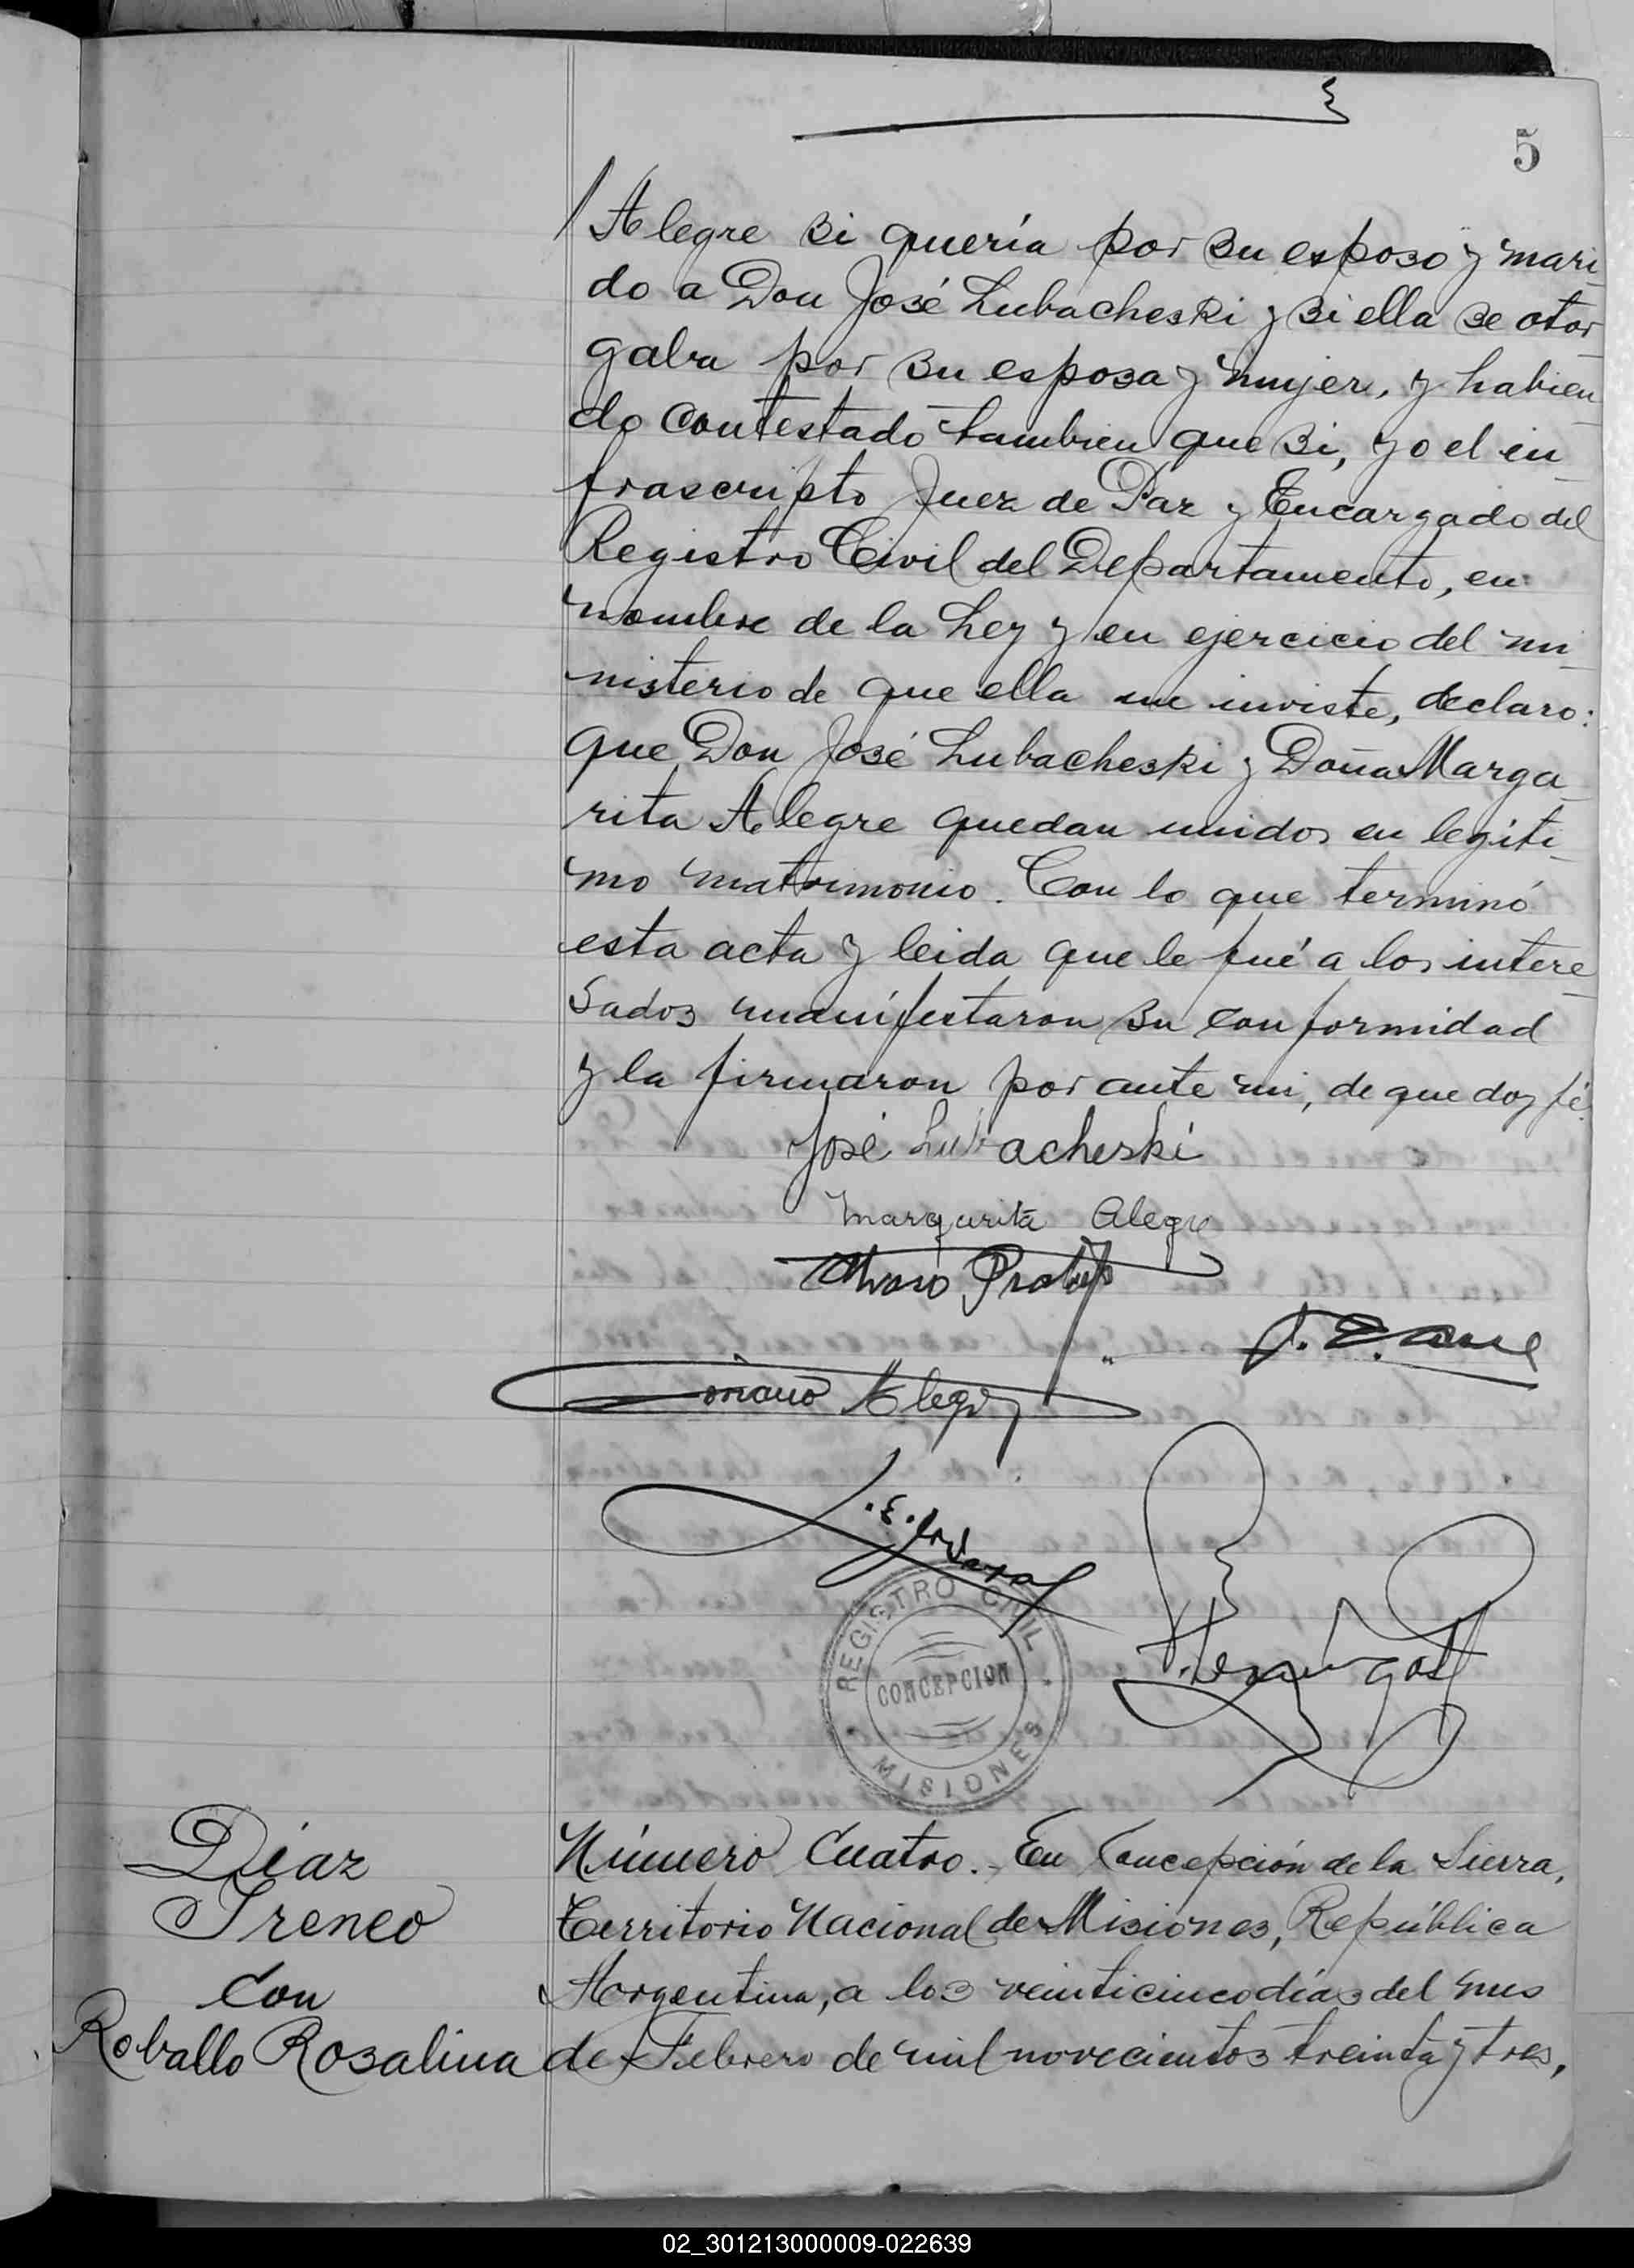 5
Alegre si quería por su esposo y mari-
do a Don José Lubacheski y si ella se otor-
gaba por su esposa y mujer, y habien-
do contestado tambien que si, yo el in-
frascripto Juez de Paz y Encargado del
Registro Civil del Departamento, en
nombre de la Ley y en ejercicio del mi-
nisterio de que ella me inviste, declaro:
que Don José Lubacheski y Doña Marga-
rita Alegre quedan unidos en legíti-
mo matrimonio. Con lo que terminó
esta acta y leida que le fué a los intere-
sados manifestaron su conformidad
y la firmaron por ante mi, de que doy fé.
José Lubacheski
Margarita Alegre
Alegre
REGISTRO CIVIL
CONCEPCION
MISIONES
Díaz
Ireneo
con
Roballo Rosalina
Número Cuatro.- En Concepción de la Sierra,
Territorio Nacional de Misiones, República
Argentina, a los veinticinco días del mes
de Febrero de mil novecientos treinta y tres,
02_301213000009-022639